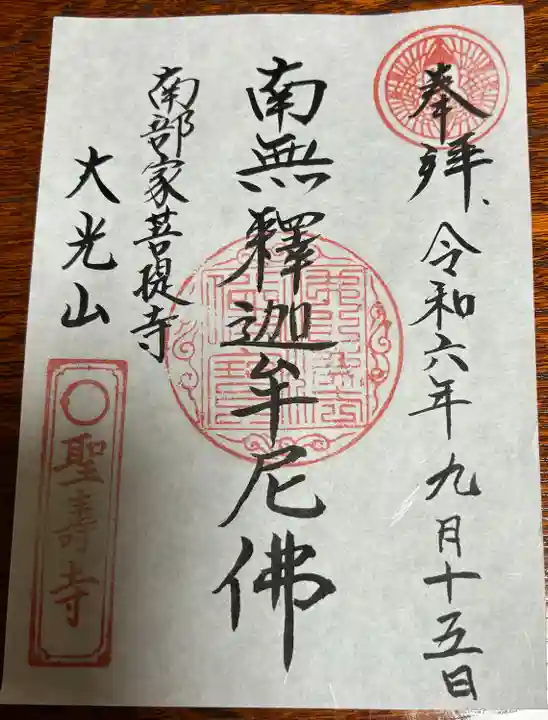 奉拝、令和六年九月十五日
南無釋迦牟尼佛
南部家菩提寺
大光山
聖壽寺